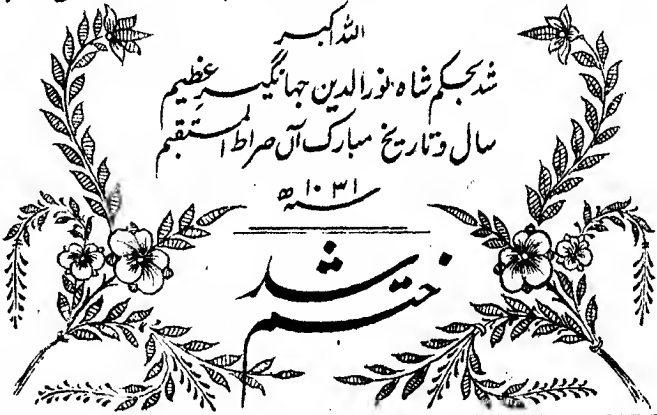 اللہ اکبر
شد بحکم شاہ نورالدین جہانگیرِ عظیم
سال و تاریخ مبارک آں صراط المستقیم
سنہ ۱۰۳۱ ھ
ختم شد